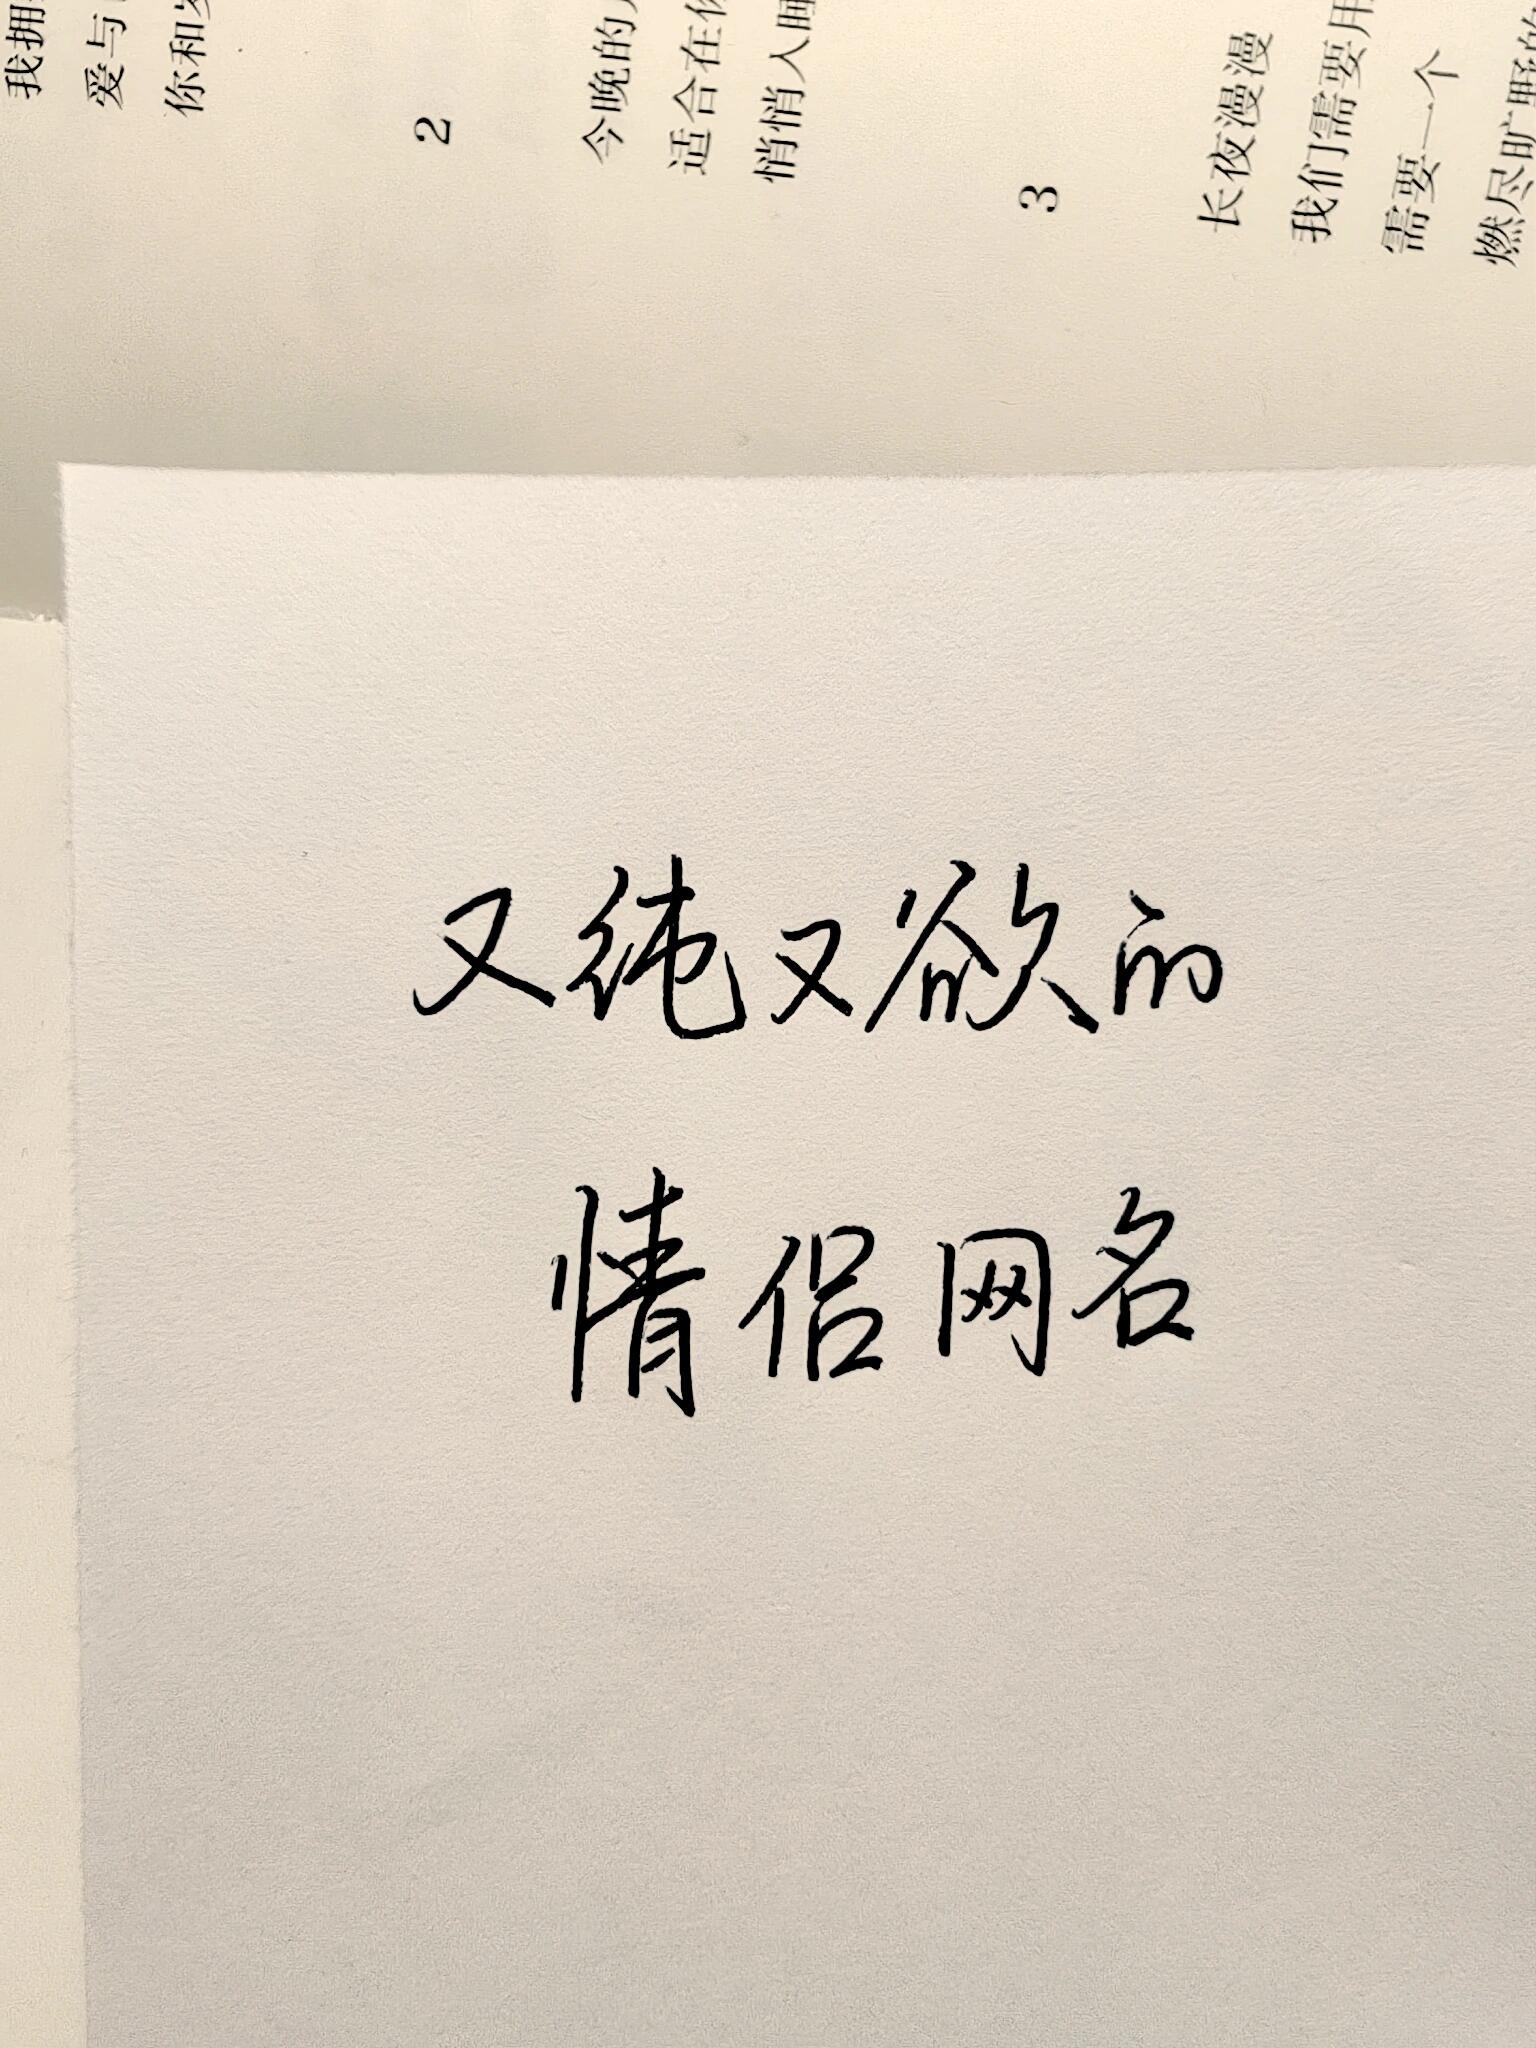 我拥
爱与
你和岁
2
今晚的
适合在你
悄悄入睡
3
长夜漫漫
我们需要用
需要一个
燃尽旷野的
又纯又欲的
情侣网名